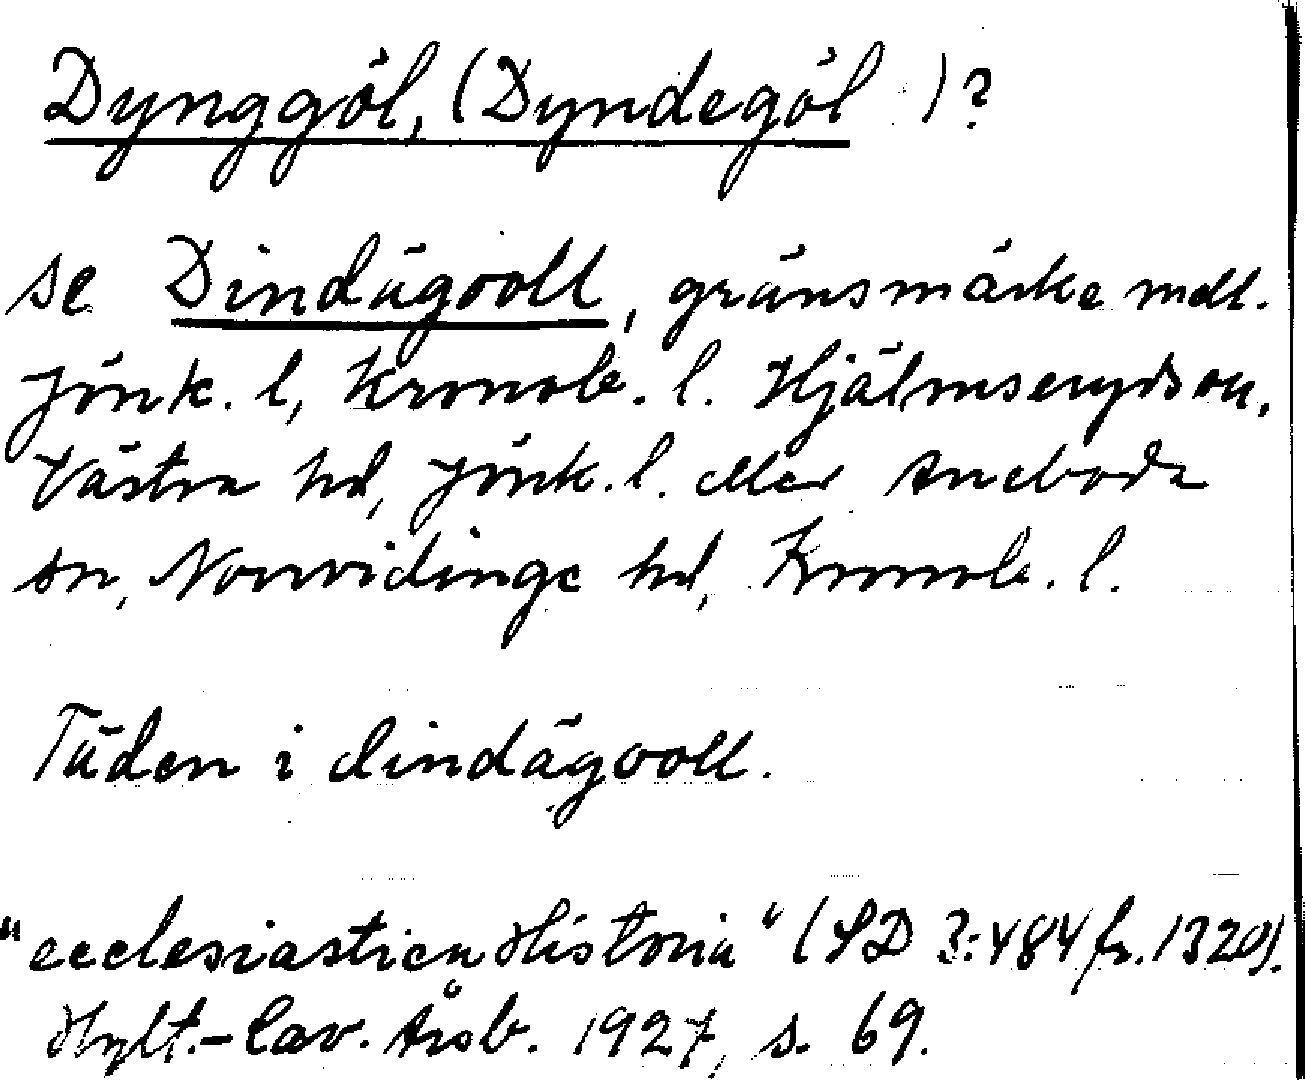 Dynggöl, (Dyndegöl )?
se Dindägooll, gränsmärke mell.
Jönk. l, Kronob. l. Hjälmseryds sn,
Västra hd, Jönk. l. eller Aneboda
sn, Norrvidinge hd, Kronob. l.
Täden i dindägooll.
"ecclesiastica Historia" (SD 3:484 fr. 1320).
Hylt.-Cav. Årsb. 1927, s. 69.